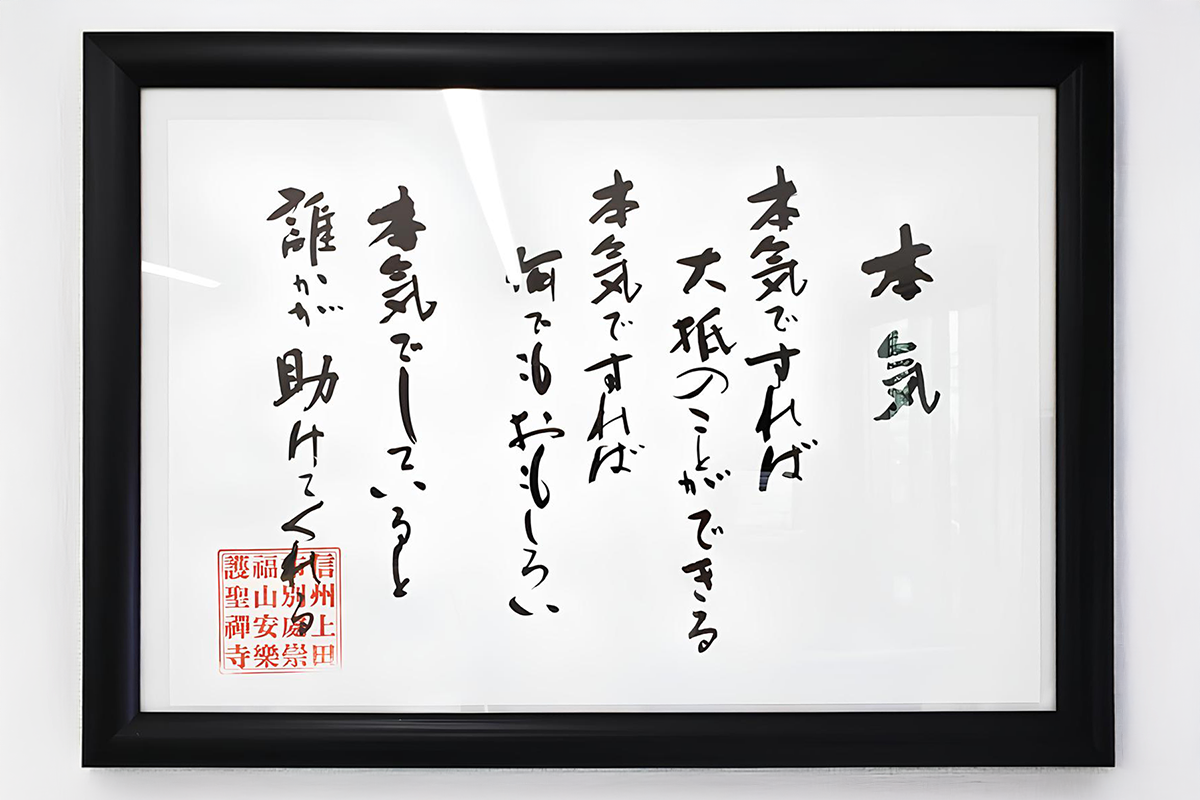 本気
本気ですれば
大抵のことができる
本気ですれば
何でもおもしろい
本気でしていると
誰かが助けてくれる
信州上田
市別處崇
福山安樂
護聖禪寺